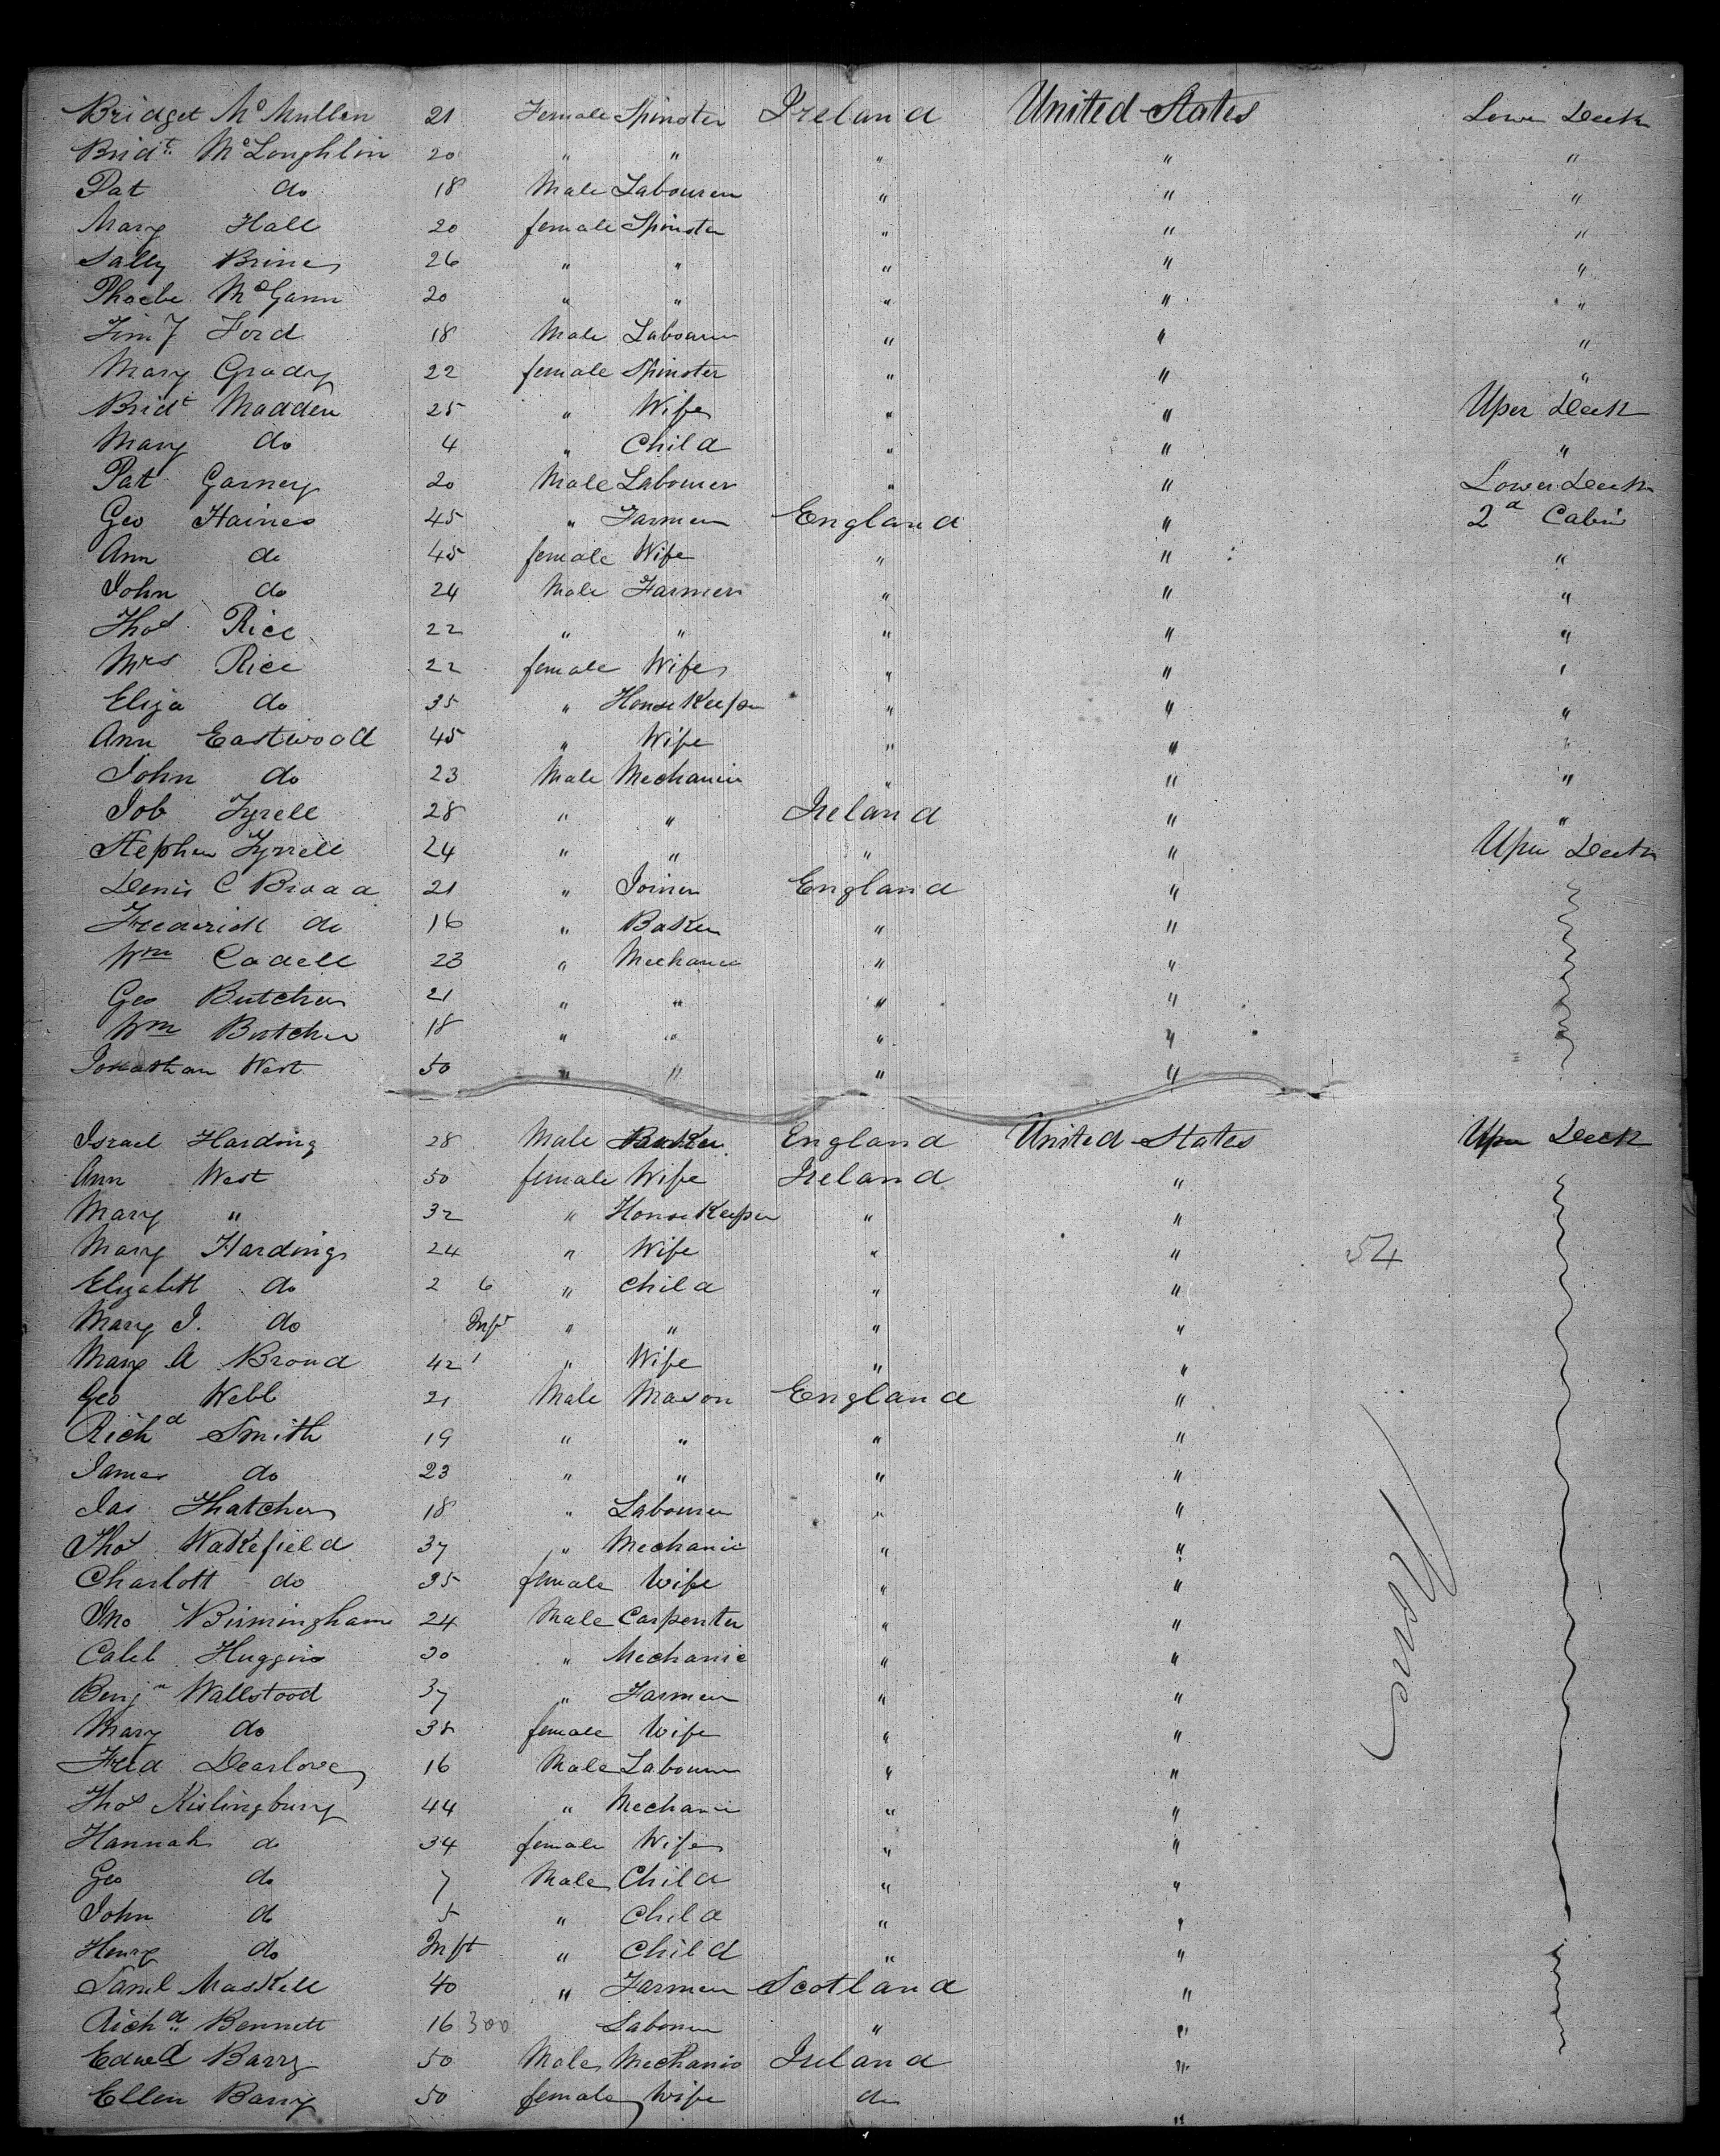 Bridget McMullen 21 Female Spinster Ireland United States Lower Deck
Bridt McLoughlin 20 " " " " "
Pat do 18 Male Labourer " " "
Mary Hall 20 female Spinster " " "
Sally Brines 26 " " " " "
Phoebe McGann 20 " " " " "
Jim J Ford 18 Male Labourer " " "
Mary Grady 22 female Spinster " " "
Bridt Madden 25 " Wife " " Uper Deck
Mary do 4 " Child " " "
Pat Garney 20 Male Labourer " " Lower Deck
Geo Haines 45 " Farmer England " 2d Cabin
Ann do 45 female Wife " " "
John do 24 Male Farmer " " "
Thos Rice 22 " " " " "
Mrs Rice 22 female Wife " " "
Eliza do 35 " House Keeper " " "
Ann Eastwood 45 " Wife " " "
John do 23 Male Mechanic " " "
Job Tyrell 28 " " Ireland " "
Stephen Tyrrell 24 " " " " Uper Deck
Denis C Broad 21 " Joiner England "
Frederick do 16 " Baker " "
Wm Cadell 23 " Mechanic " "
Geo Butcher 21 " " " "
Wm Butcher 18 " " " "
Jonathan West 50 " " " "
Israel Harding 28 Male Baker England United States Uper Deck
Ann West 50 female Wife Ireland "
Mary " 32 " House Keeper " "
Mary Harding 24 " Wife " " 54
Elizabeth do 2 6 " Child " "
Mary J. do Inft " " " "
Mary A Broad 42 " Wife " "
Geo Webb 21 Male Mason England "
Richd Smith 19 " " " "
James do 23 " " " "
Jas Thatcher 18 " Labourer " "
Thos Wakefield 37 " Mechanic " "
Charlott do 35 female Wife " "
Jno Birmingham 24 Male Carpenter " "
Caleb Huggins 30 " Mechanic " "
Benjn Wallstood 37 " Farmer " "
Mary do 38 female Wife " "
Fred Dearlove 16 Male Labourer " "
Thos Kislingbury 44 " Mechanic " "
Hannah do 34 female Wife " "
Geo do 7 Male Child " "
John do 5 " Child " "
Henry do Inft " Child " "
Saml Maskell 40 " Farmer Scotland "
Richd Bennett 16 300 Labourer " "
Edwd Barry 50 Male Mechanic Ireland "
Ellen Barry 50 female Wife do "